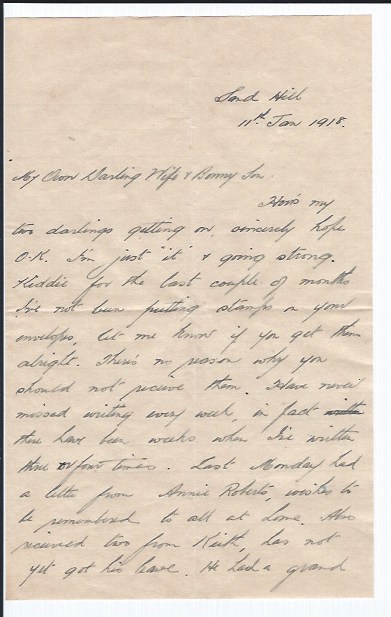 Sand Hill
11th Jan 1918.
My Own Darling Wife & Bonny Son.
How's my
two darlings getting on, sincerely hope
O.K. I'm just "it" & going strong.
Kiddie for the last couple of months
I've not been putting stamps on your
envelopes, let me know if you get them
alright. There's no reason why you
should not receive them. Have never
missed writing every week, in fact written
there have been weeks when I've written
three or four times. Last Monday had
a letter from Annie Roberts, wishes to
be remembered to all at home. Also
received two from Keith, has not
yet got his leave. He had a grand